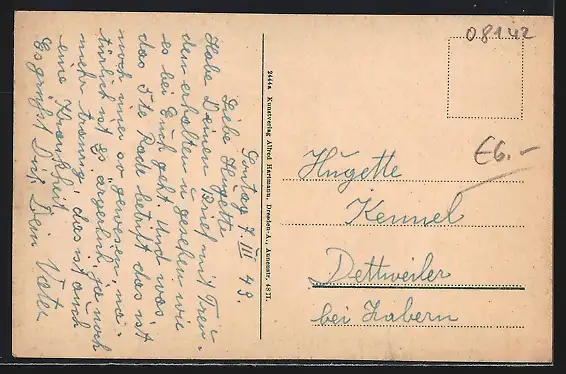 Sontag 7 III 43.
Liebe Hugette
Habe Deinen Brief mit Freu-
den erhalten u. gesehen wie
es bei Euch geht. Und was
das Rade betrift das ist
noch nie so gewesen, na-
türlich ist es ärgerlich, ja noch
mehr traurig, das ist auch
eine Krankheit
Es grüsst Dich Dein Vater
2444a Kunstverlag Alfred Hartmann, Dresden-A., Annenstr. 48 II.
08142
€6.-
Hugette
Kennel
Dettweiler
bei Zabern